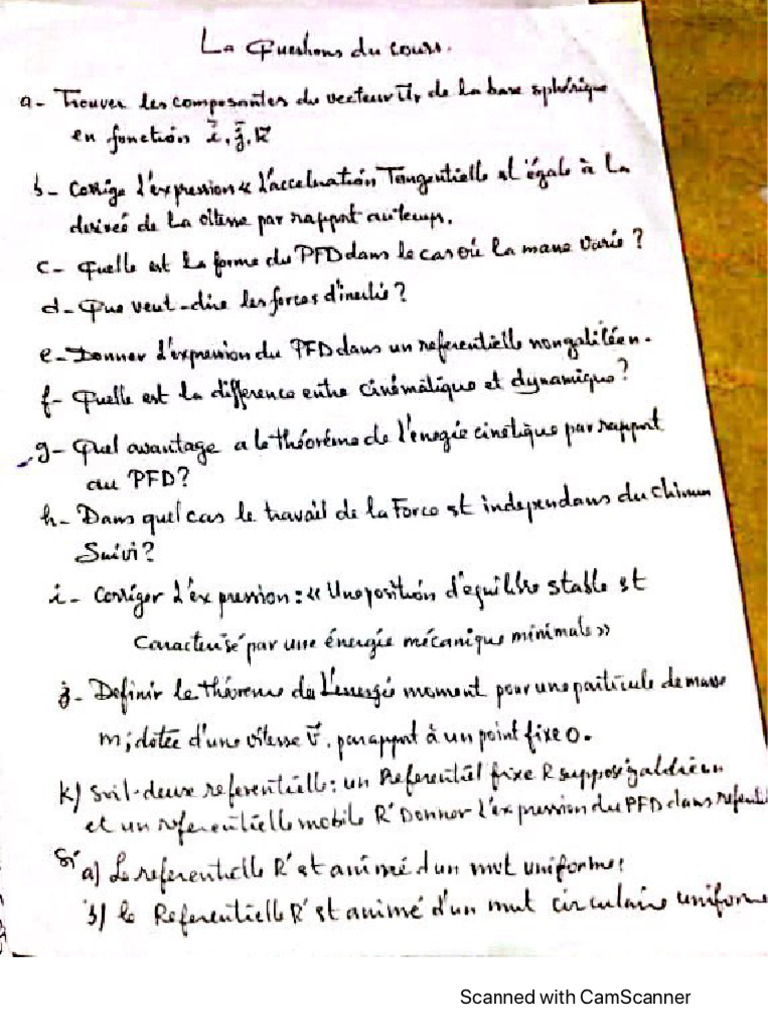 La Questions du cours.
a- Trouver les composantes du vecteur U⃗r de la base sphérique
en fonction i⃗, j⃗, k⃗
b- Corrige l'expression « l'accelération Tangentielle st égale à la
derivée de la vitesse par rapport au temps.
c- Quelle est la forme du PFD dans le cas où la masse varie ?
d- Que veut-dire les forces d'inertie ?
e- Donner l'expression du PFD dans un referentielle non galiléen.
f- Quelle est la différence entre cinématique et dynamique ?
g- Quel avantage a le théorème de l'energie cinetique par rapport
au PFD ?
h- Dans quel cas le travail de la Force st independans du chimin
Suivi ?
i- Corriger l'expression : « Une position d'equilibre stable st
Caracterisé par une énergie mécanique minimale »
j- Definir le théoreme de L'energie moment pour une particule de masse
m ; dotée d'une vitesse V⃗, par apport à un point fixe O.
k) Soit deux referentielle : un Referentiel fixe R supposé galiléen
et un referentielle mobile R' Donner l'expression du PFD dans referenti
Si a) Le referentielle R' st animé d'un mvt uniforme ;
b) le Referentielle R' st animé d'un mvt circulaire uniforme
Scanned with CamScanner